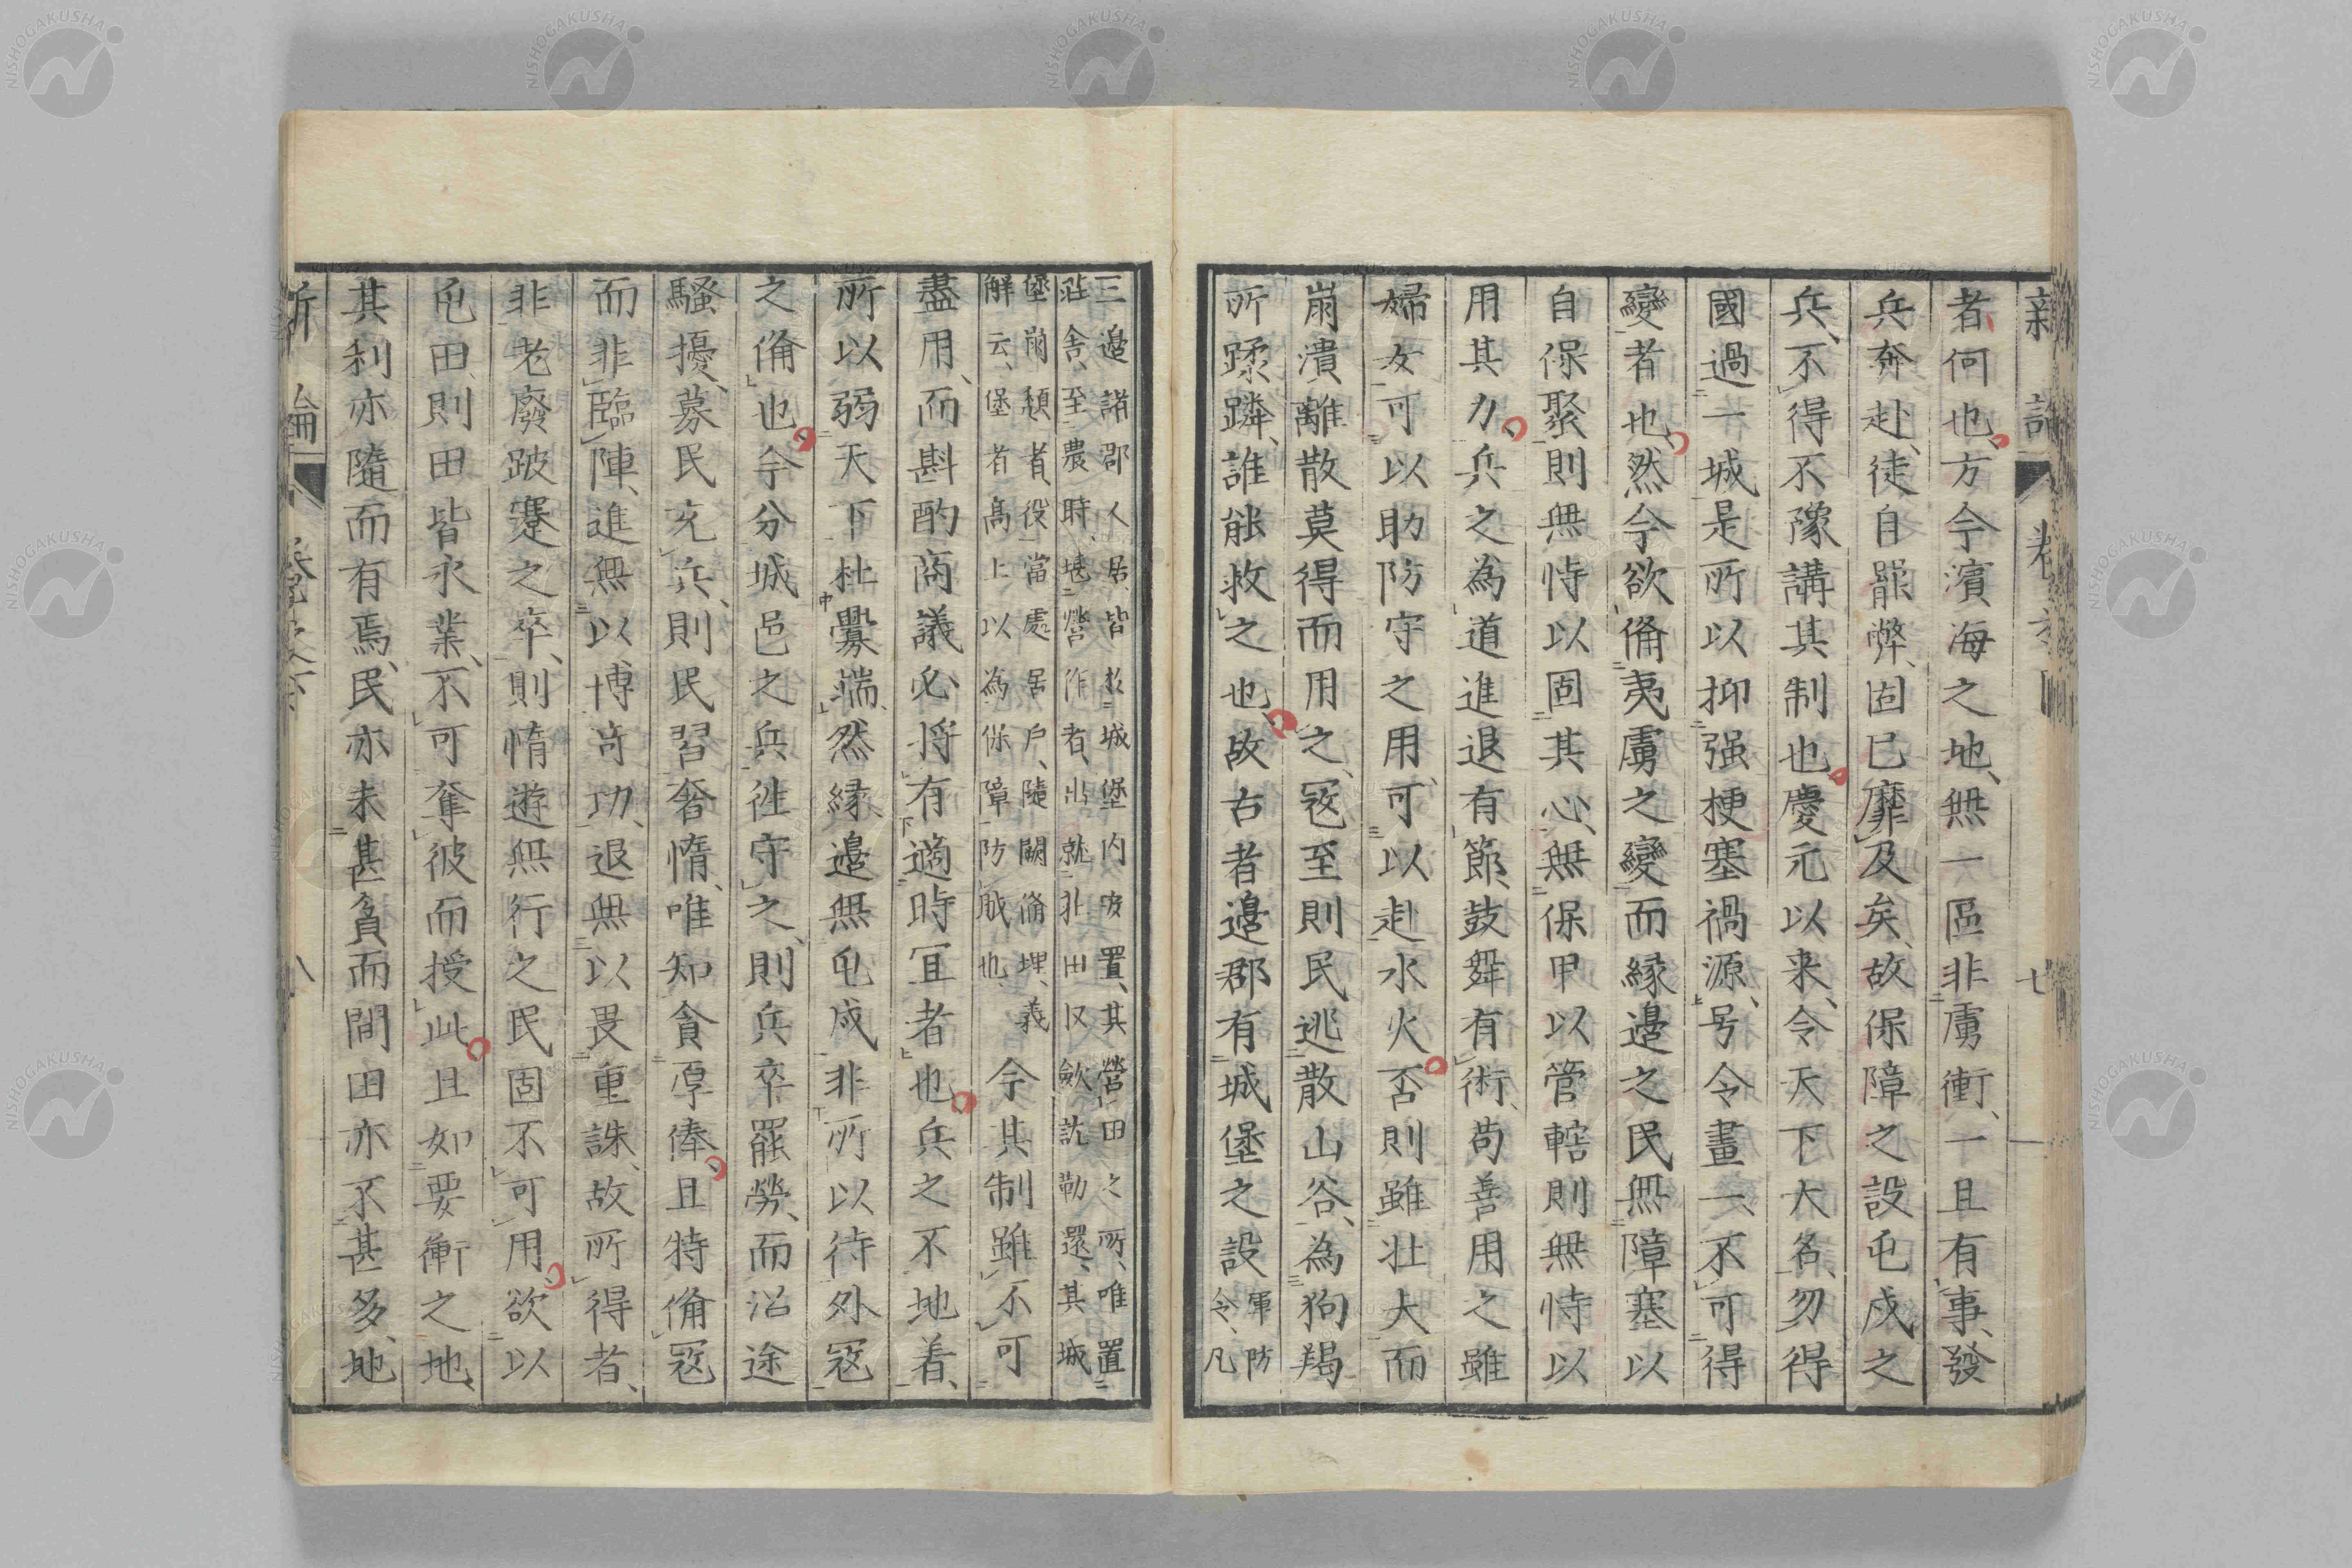 者何也、方今濱海之地、無一區非虜衝、一且有事、發
兵奔赴、徒自罷弊、固已靡及矣、故保障之設、屯戍之
兵、不得不豫講其制也、慶元以来、令天下大名、勿得
國過一城、是所以抑强梗塞禍源、号令畫一、不可得
變者也、然今欲偹夷虜之變、而縁邉之民、無障塞以
自保聚、則無恃以固其心、無保甲以管轄、則無恃以
用其力、兵之為道、進退有節、鼓舞有術、苟善用之、雖
婦女可以助防守之用、可以赴水火、否則雖壮大、而
崩潰離散、莫得而用之、冦至則民逃散山谷、為狗羯
所蹂躪、誰能救之也、故古者邉郡有城堡之設
軍防
令、凡
三邉諸郡人居、皆於城堡内安置、其營田之所、唯置
莊舎、至農時、堪營作者、出就莊田、収斂訖勒還、其城
堡崩頽者、役當處居戸、隨闕脩理、義
解云、堡者高上以為保障防賊也、
今其制雖不可
盡用、而斟酌商議、必将有適時冝者也、兵之不地着、
所以弱天下杜釁端、然縁邉無屯戍、非所以待外冦
之偹也、今分城邑之兵、徃守之、則兵卒罷勞、而沿途
騷擾、募民充兵、則民習奢惰、唯知貪厚俸、且特偹冦
而非臨陣、進無以博奇功、退無以畏重誅、故所得者、
非老廢跛蹇之卒、則惰遊無行之民、固不可用、欲以
屯田、則田皆永業、不可奪彼而授此、且如要衝之地、
其利亦隨而有焉、民亦未甚貧、而間田亦不甚多、地
新論
七
論
八
NISHOGAKUSHA